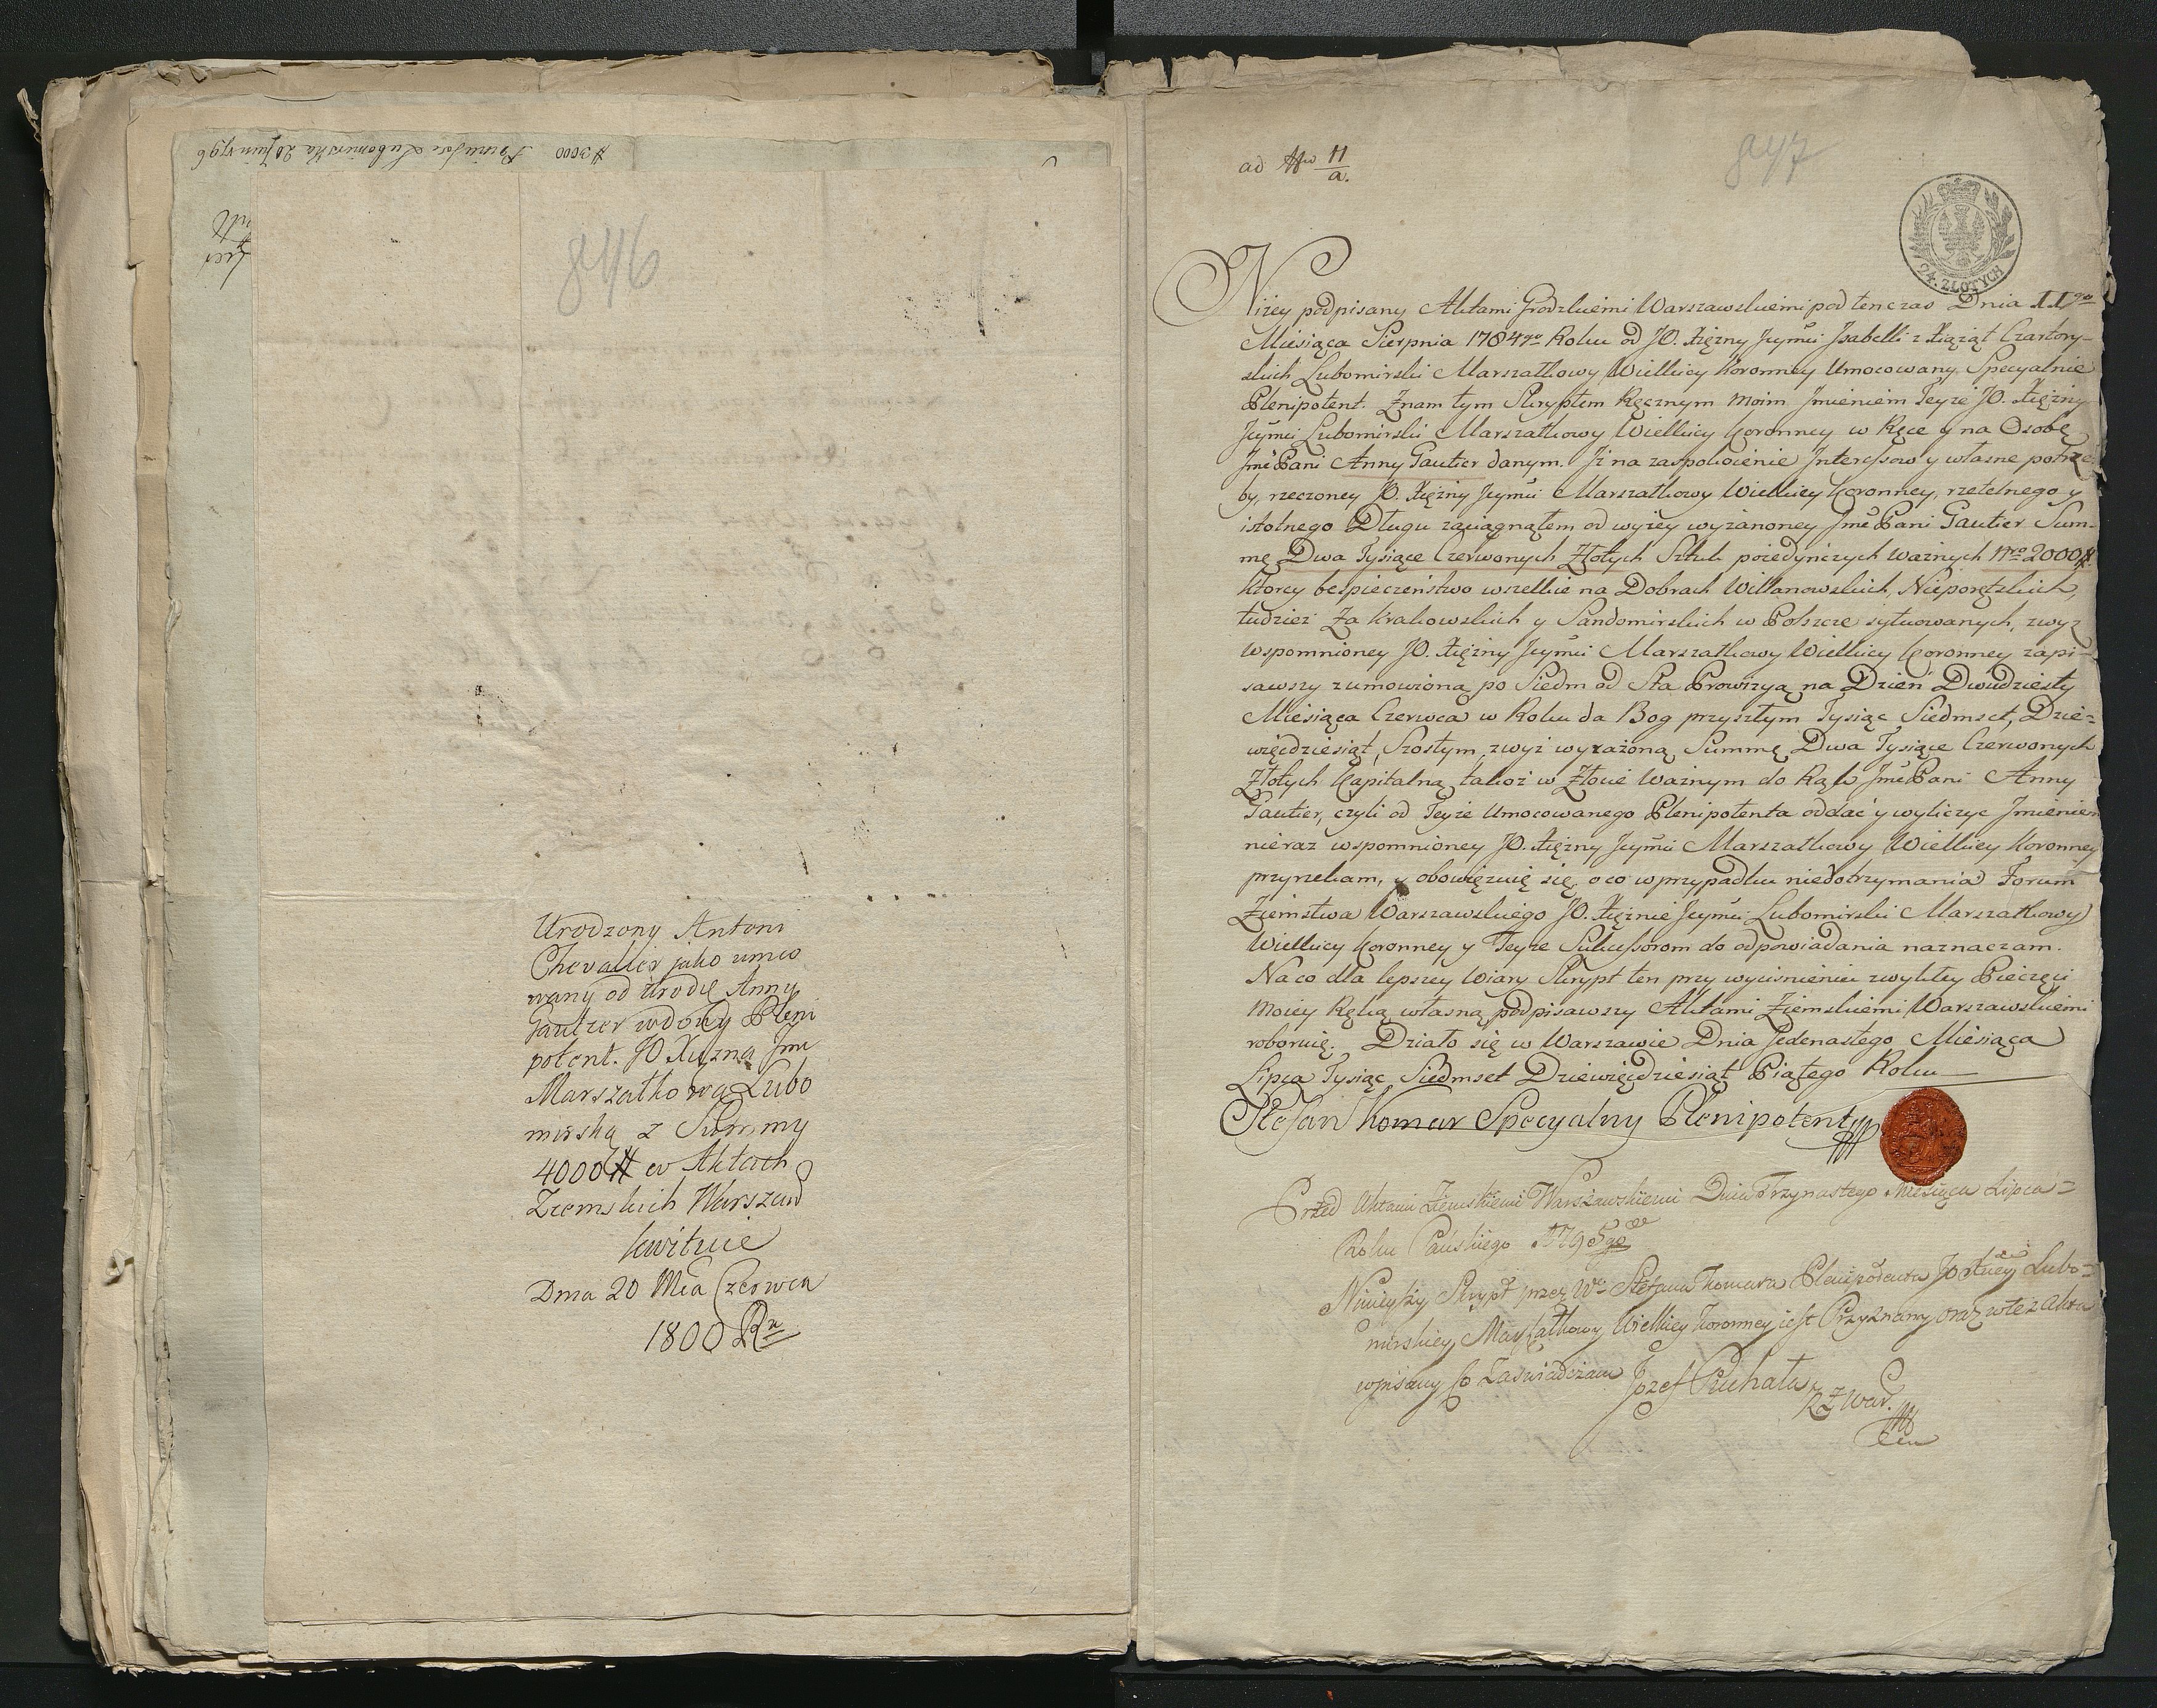 # 3000 Lubomirska 20 Juin 1796
846
Urodzony Antoni
Chevalier jako umco
wany od Urodę Anny
Gautier wdowy Pleni
potent. JO Xiężną Jmć
Marszałkową Lubo
mirską z Summy
4000 # w Aktach
Ziemskich Warszaw
kwituie
Dnia 20 Mca Czerwca
1800 Rr
ad Nro 11/a.
847
24. ZŁOTYCH
Niżey podpisany Aktami Grodzkiemi Warszawskiemi pod tenczas Dnia 11go
Miesiąca Sierpnia 1784go Roku od JO. Xiężny Jeymći Jsabelli z Xiążąt Czartory-
skich Lubomirski Marszałkowy Wielkiey Koronney Umocowany Specyalnie
Plenipotent. Znam tym Skryptem Ręcznym moim Jmieniem Teyże JO. Xiężny
Jeymći Lubomirski Marszałkowy Wielkiey Koronney w Ręce y na Osobę
Jmć Pani Anny Gautier danym. Jż na zaspokoienie Jnteressow y własne potrze-
by, rzeczoney JO. Xiężny Jeymći Marszałkowy Wielkiey Koronney, rzetelnego y
istotnego Długu zaciągnąłem od wyżey wyrażoney Jmć Pani Gautier Sum-
mę Dwa Tysiące Czerwonych Złotych Sztuk poiedyńczych ważnych Nro 2000 #
ktorey bespieczeństwo wszelkie na Dobrach Willanowskich, Nieporętskich,
tudzież Za Krakowskich y Sandomirskich w Polszcze sytuowanych, zwyż
wspomnioney JO. Xiężny Jeymći Marszałkowy Wielkiey Koronney zapi-
sawszy zumowioną po Siedm od Sta Prowizyą na Dzień Dwudziesty
Miesiąca Czerwca w Roku da Bog przyszłym Tysiąc Siedmset, Dzie-
więćdziesiąt, Szostym, zwyż wyrażoną Summę Dwa Tysiące Czerwonych
Złotych Kapitalną takoż w Złocie ważnym do Rąk Jmć Pani Anny
Gautier, czyli od Teyże Umocowanego Plenipotenta oddać y wyliczyc Jmieniem
nieraz wspomnioney JO. Xiężny Jeymći Marszałkowy Wielkiey Koronney
przyrzekam, y obowięzuię się, o co w przypadku niedotrzymania Forum
Ziemstwa Warszawskiego JO. Xiężnie Jeymći Lubomirski Marszałkowy
Wielkiey Koronney y Teyże Sukcessorom do odpowiadania naznaczam.
Na co dla lepszey Wiary Skrypt ten przy wyciśnieniu zwykłey Pieczęci
moiey Ręką własną podpisawszy Aktami Ziemskiemi Warszawskiemi
roboruię. Działo się w Warszawie Dnia Jedenastego Miesiąca
Lipca Tysiąc Siedmset Dziewięćdziesiąt Piątego Roku
Stefan Komar Specyalny Plenipotent
Przed Aktami Ziemskiemi Warszawskiemi Dnia Trzynastego Miesiąca Lipca=
Roku Pańskiego 1795go
Ninieyszy Skrypt przez Wo Stefana Komara Plenipotenta JO Xney Lubo=
mirskiey Marszałkowy Wielkiey Koronney iest Przyznany oraz w też Akta
wpisany co Zaświadczam Jozef Puchała
R Z War.